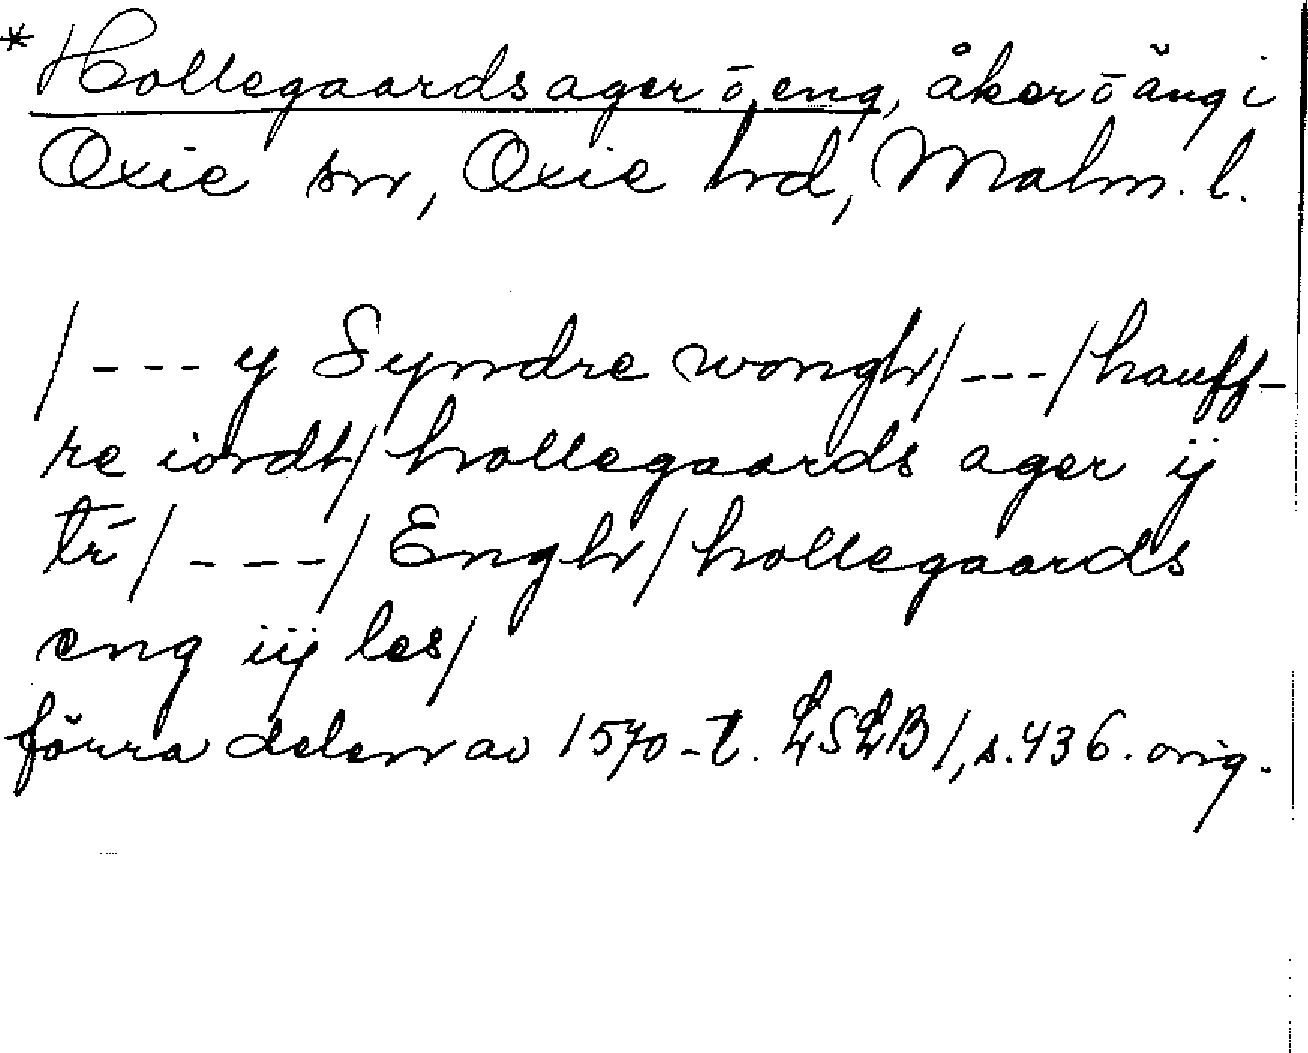 *Hollegaards ager ō eng, åker ō äng i
Oxie sn, Oxie hd, Malm. l.
/ --- y Syndre wongh / --- / hauff-
re iordh / hollegaards ager ij
tr̄ / --- / Engh / hollegaards
eng iij les /
förra delen av 1570-t. LSLB 1, s. 436. orig.